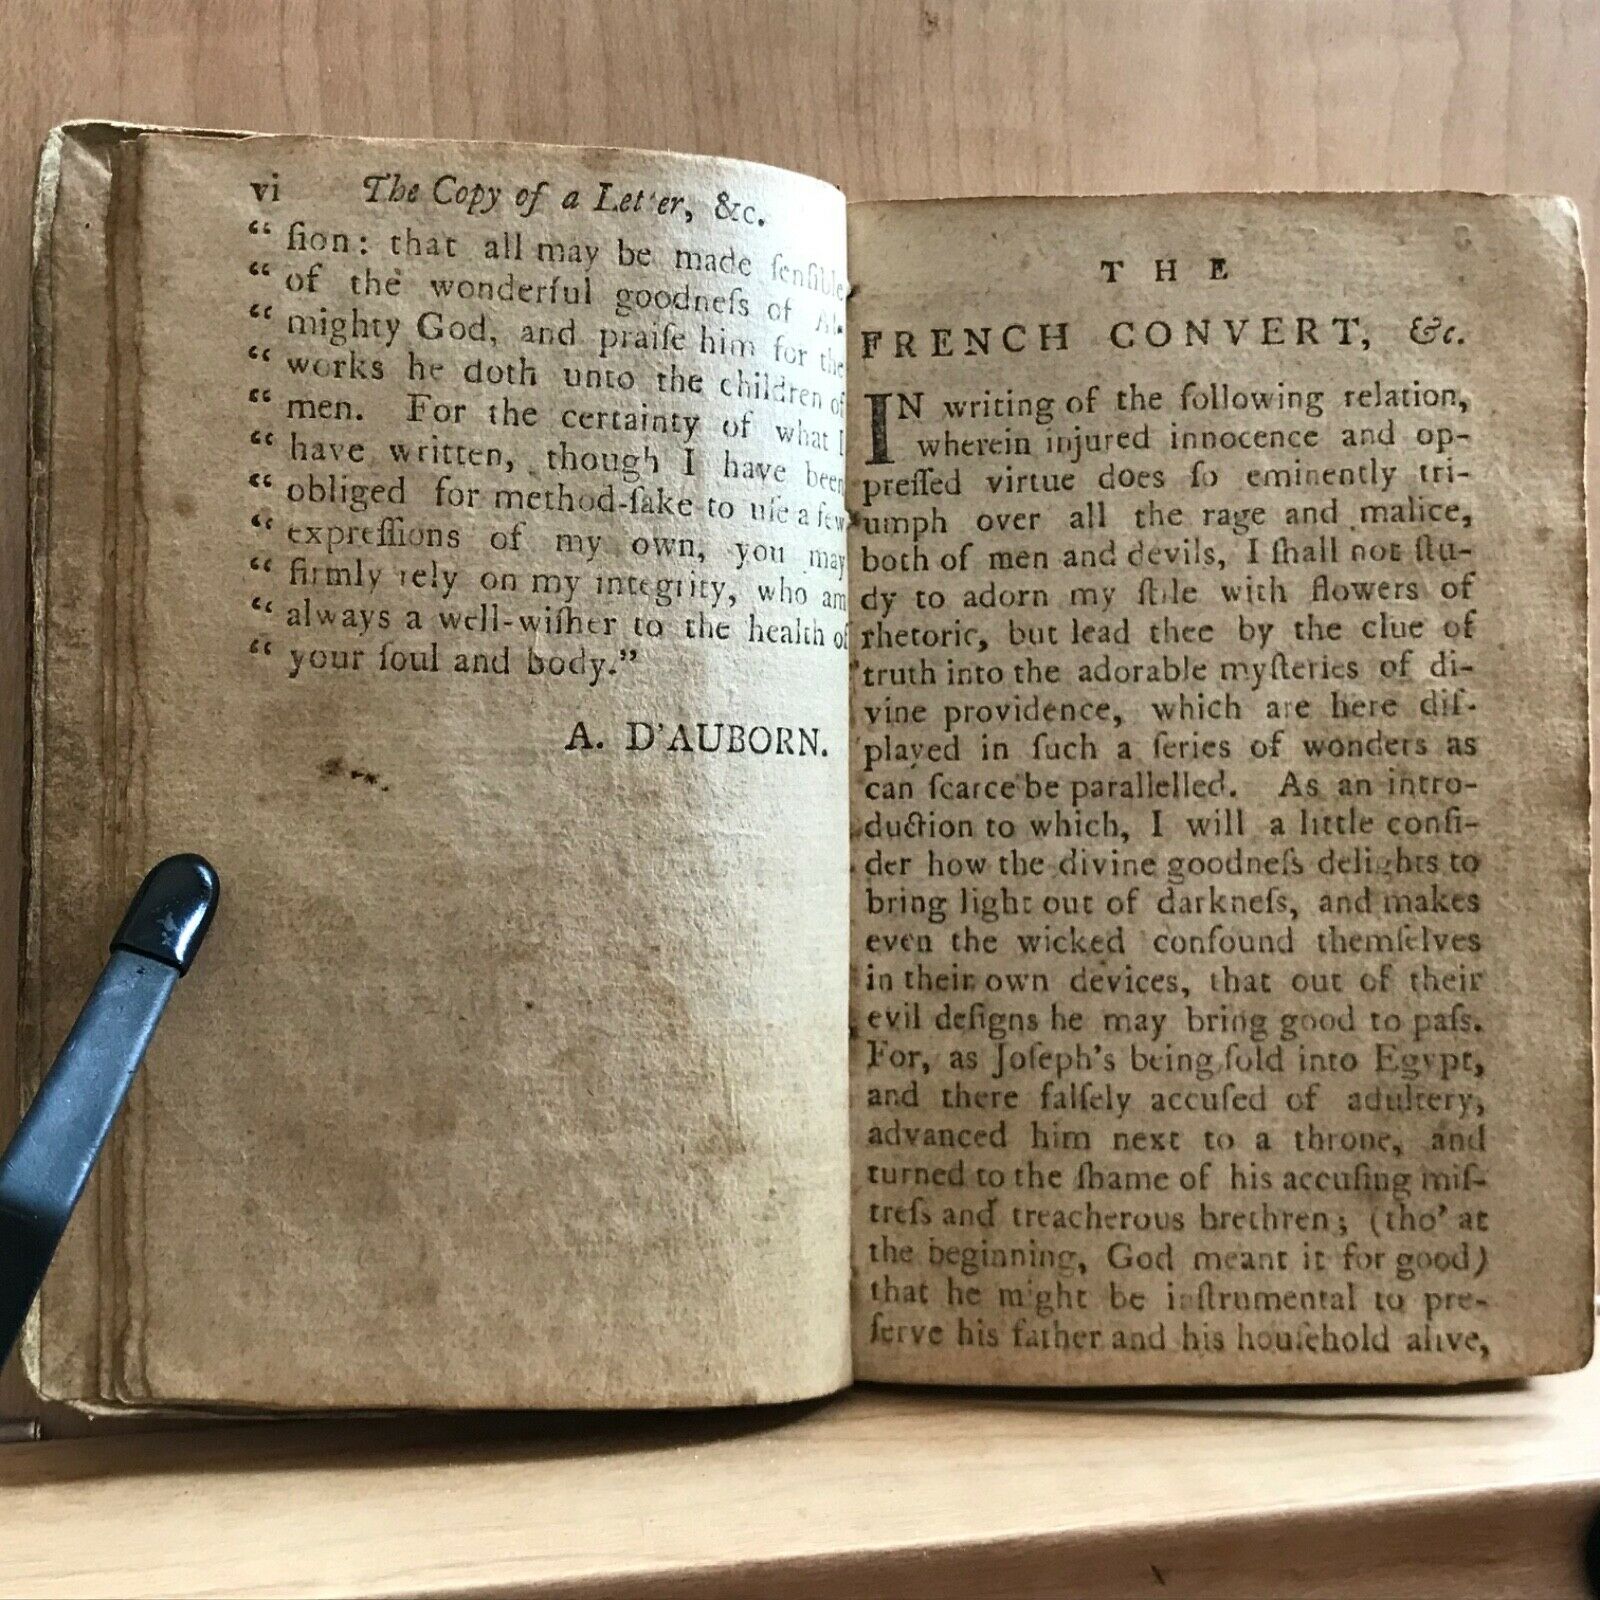 vi The Copy of a Letter, &c.
“ ſion: that all may be made ſenſible
“ of the wonderful goodneſs of Al-
“ mighty God, and praiſe him for the
“ works he doth unto the children of
“ men. For the certainty of what I
“ have written, though I have been
“ obliged for method-ſake to uſe a few
“ expreſſions of my own, you may
“ firmly rely on my integrity, who am
“ always a well-wiſher to the health of
“ your ſoul and body.”
A. D'AUBORN.
THE
FRENCH CONVERT, &c.
IN writing of the following relation,
wherein injured innocence and op-
preſſed virtue does ſo eminently tri-
umph over all the rage and malice,
both of men and devils, I ſhall not ſtu-
dy to adorn my ſtile with flowers of
rhetoric, but lead thee by the clue of
truth into the adorable myſteries of di-
vine providence, which are here diſ-
played in ſuch a ſeries of wonders as
can ſcarce be parallelled. As an intro-
duction to which, I will a little conſi-
der how the divine goodneſs delights to
bring light out of darkneſs, and makes
even the wicked confound themſelves
in their own devices, that out of their
evil deſigns he may bring good to paſs.
For, as Joſeph's being ſold into Egypt,
and there falſely accuſed of adultery,
advanced him next to a throne, and
turned to the ſhame of his accuſing miſ-
treſs and treacherous brethren; (tho' at
the beginning, God meant it for good)
that he might be inſtrumental to pre-
ſerve his father and his houſehold alive,